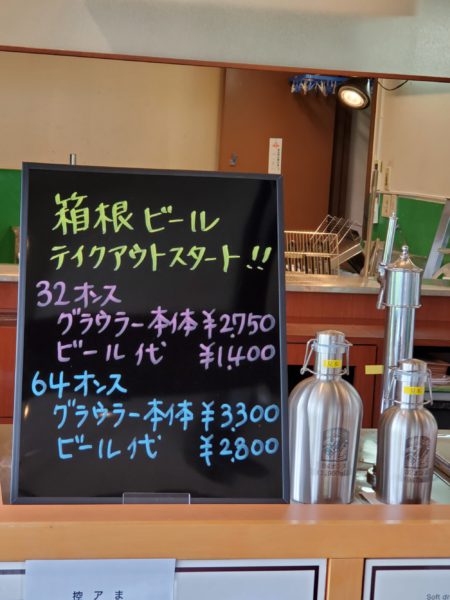 箱根ビール
テイクアウトスタート!!
32オンス
グラウラー本体 ¥2.750
ビール代 ¥1.400
64オンス
グラウラー本体 ¥3.300
ビール代 ¥2.800
64オンス
控アま
Soft d